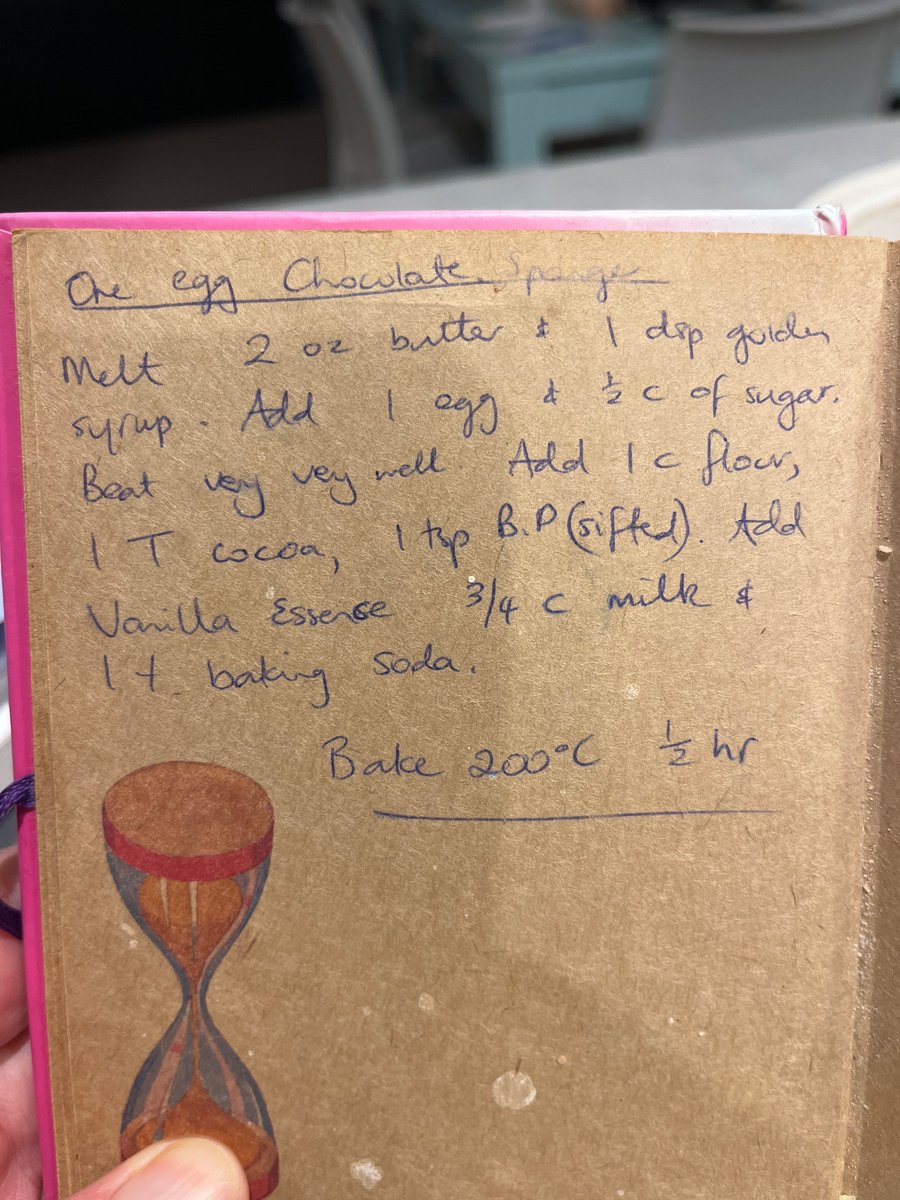 One egg Chocolate Sponge
Melt 2 oz butter & 1 dsp golden
syrup. Add 1 egg & ½ c of sugar.
Beat very very well. Add 1 c flour,
1 T cocoa, 1 tsp B.P (sifted). Add
Vanilla Essense 3/4 c milk &
1 t baking soda.
Bake 200°C ½ hr